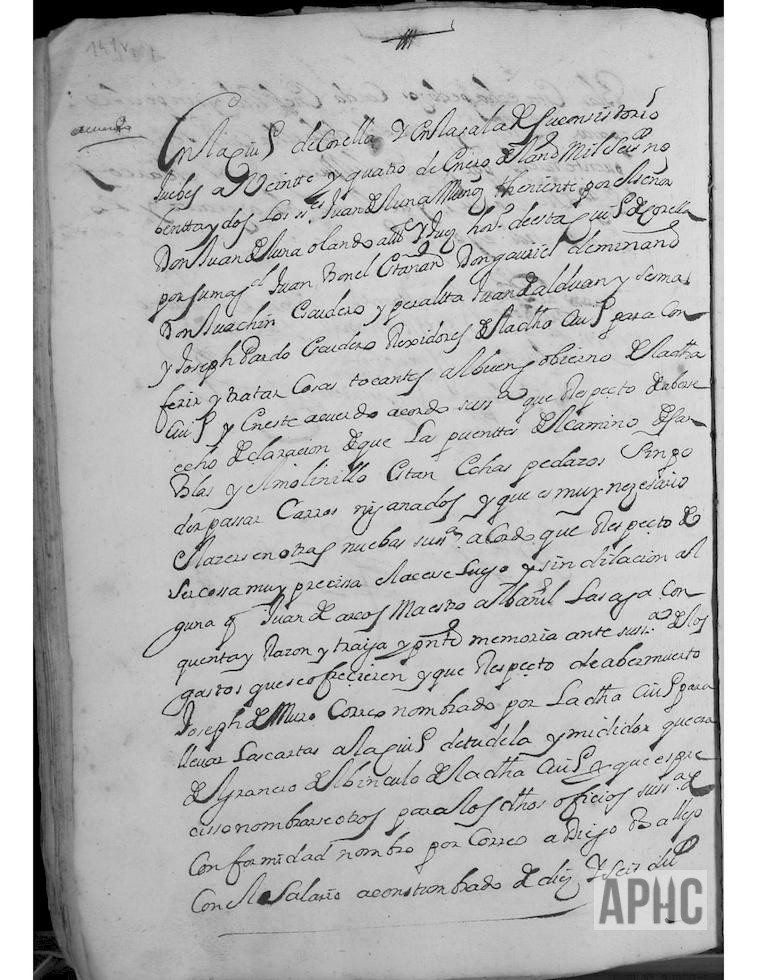 acuerdo
En la ciud de Corella y en la sala de su consistorio
Juebes a Veintte y quatro de Enero del ano Mil seis no
bentta y dos Los ss.es Juan de luna Muñoz theniente por el señor
Don Juan de luna olando allde y Juez hor.o de esta Ciud de Corella
por su mag.d Juan Bonel Don gauriel de minano
Don Juachin Escudero y peralta Juan de alduan y
y Joseph Pardo Escudero Rexidores de la dha Ciud para con
ferir y tratar Cosas tocantes al buen gobierno de la dha
Ciud y en este acuerdo acordo sus.a que Respecto de aberse
echo declaracion de que Las puenttes del camino de san
Blas y el molinillo estan echas pedazos sin po
der passar Carros ni ganados y que es muy nezesario
el azersen otras nuebas sus.a acordo que Respecto de
ser cossa muy precissa el acerse luego y sin dilacion al
guna q Juan de arcos Maestro albañil Las aga con
quenta y Razon y traiga y pnte memoria ante sus.a de los
gastos que se ofrecieren y que Respecto de aber muerto
Joseph de Muro Correo nombrado por La dha Ciud para
lleuar Las cartas a la ciud de tudela y midидor que era
del granero del binculo de la dha Ciud y que es pre
cisso nombrar otros para los dhos oficios sus.a de
Conformidad nombro por Correo a Diego Ballejo
Con el Salario acostumbrado de diez y seis du.s
APHC